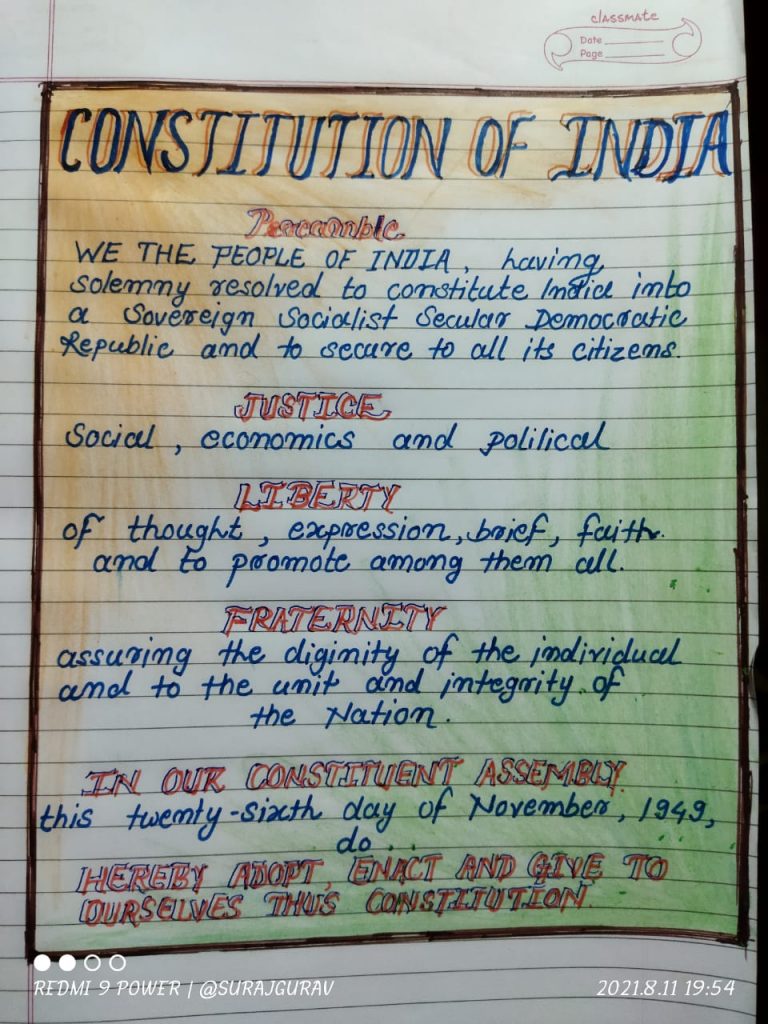 classmate
Date
Page
CONSTITUTION OF INDIA
Preeamble
WE THE PEOPLE OF INDIA, having
solemny resolved to constitute India into
a Sovereign Socialist Secular Democratic
Republic and to secure to all its citizens.
JUSTICE
Social, economics and political
LIBERTY
of thought, expression, brief, faith
and to promote among them all.
FRATERNITY
assuring the diginity of the individual
and to the unit and integrity of
the Nation.
IN OUR CONSTITUENT ASSEMBLY
this twenty-sixth day of November, 1949,
do...
HEREBY ADOPT, ENACT AND GIVE TO
OURSELVES THUS CONSTITUTION.
REDMI 9 POWER | @SURAJGURAV
2021.8.11 19:54